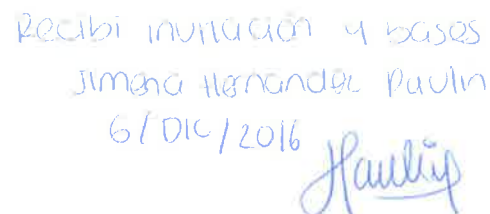 Recibi invitación y bases
Jimena Hernandez Paulin
6/DIC/2016